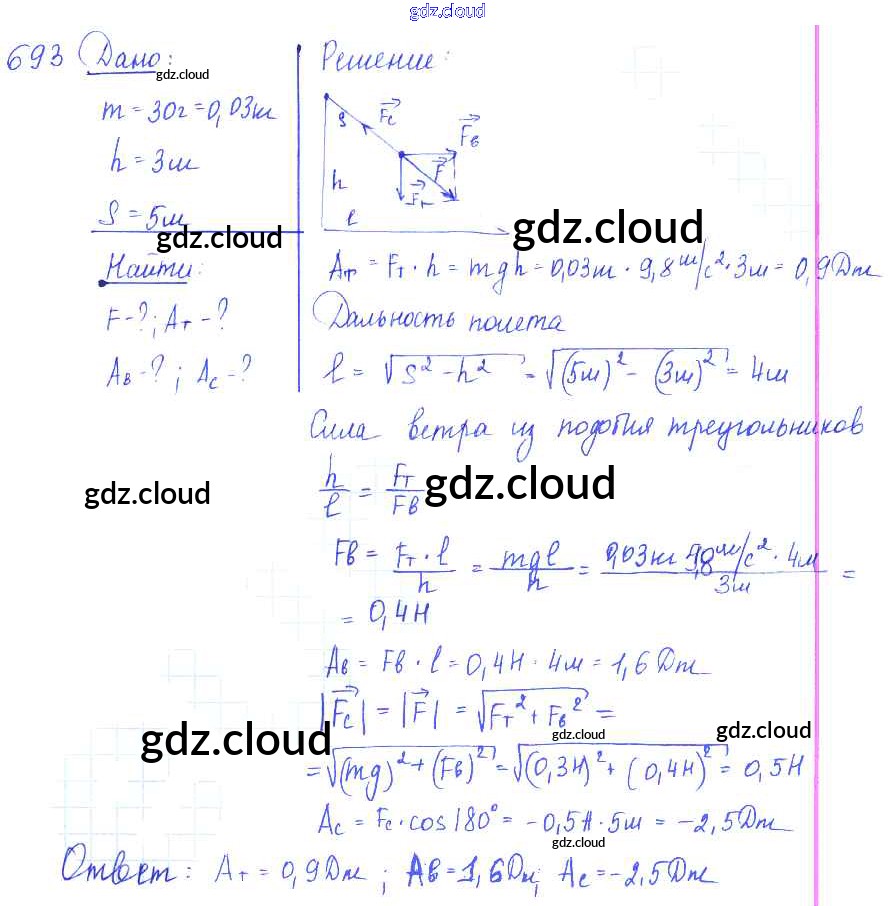 gdz.cloud
693 Дано:
gdz.cloud
m = 30г = 0,03кг
h = 3м
S = 5м
gdz.cloud
Найти:
F - ?; Aт - ?
Aв - ?; Ac - ?
gdz.cloud
Решение:
S Fc Fв
h F Fт
l
gdz.cloud
Aт = Fт · h = mgh = 0,03кг · 9,8 м/с² · 3м = 0,9Дж
Дальность полета
l = √S² - h² = √(5м)² - (3м)² = 4м
Сила ветра из подобия треугольников
h/l = Fт/Fв
gdz.cloud
Fв = Fт · l/h = mgl/h = 0,03кг 9,8 м/с² · 4м/3м =
= 0,4Н
Aв = Fв · l = 0,4Н · 4м = 1,6Дж
|Fc| = |F| = √Fт² + Fв² =
gdz.cloud
gdz.cloud
gdz.cloud
= √(mg)² + (Fв)² = √(0,3Н)² + (0,4Н)² = 0,5Н
Ac = Fc · cos180° = -0,5Н · 5м = -2,5Дж
gdz.cloud
Ответ: Aт = 0,9Дж; Aв = 1,6Дж; Ac = -2,5Дж